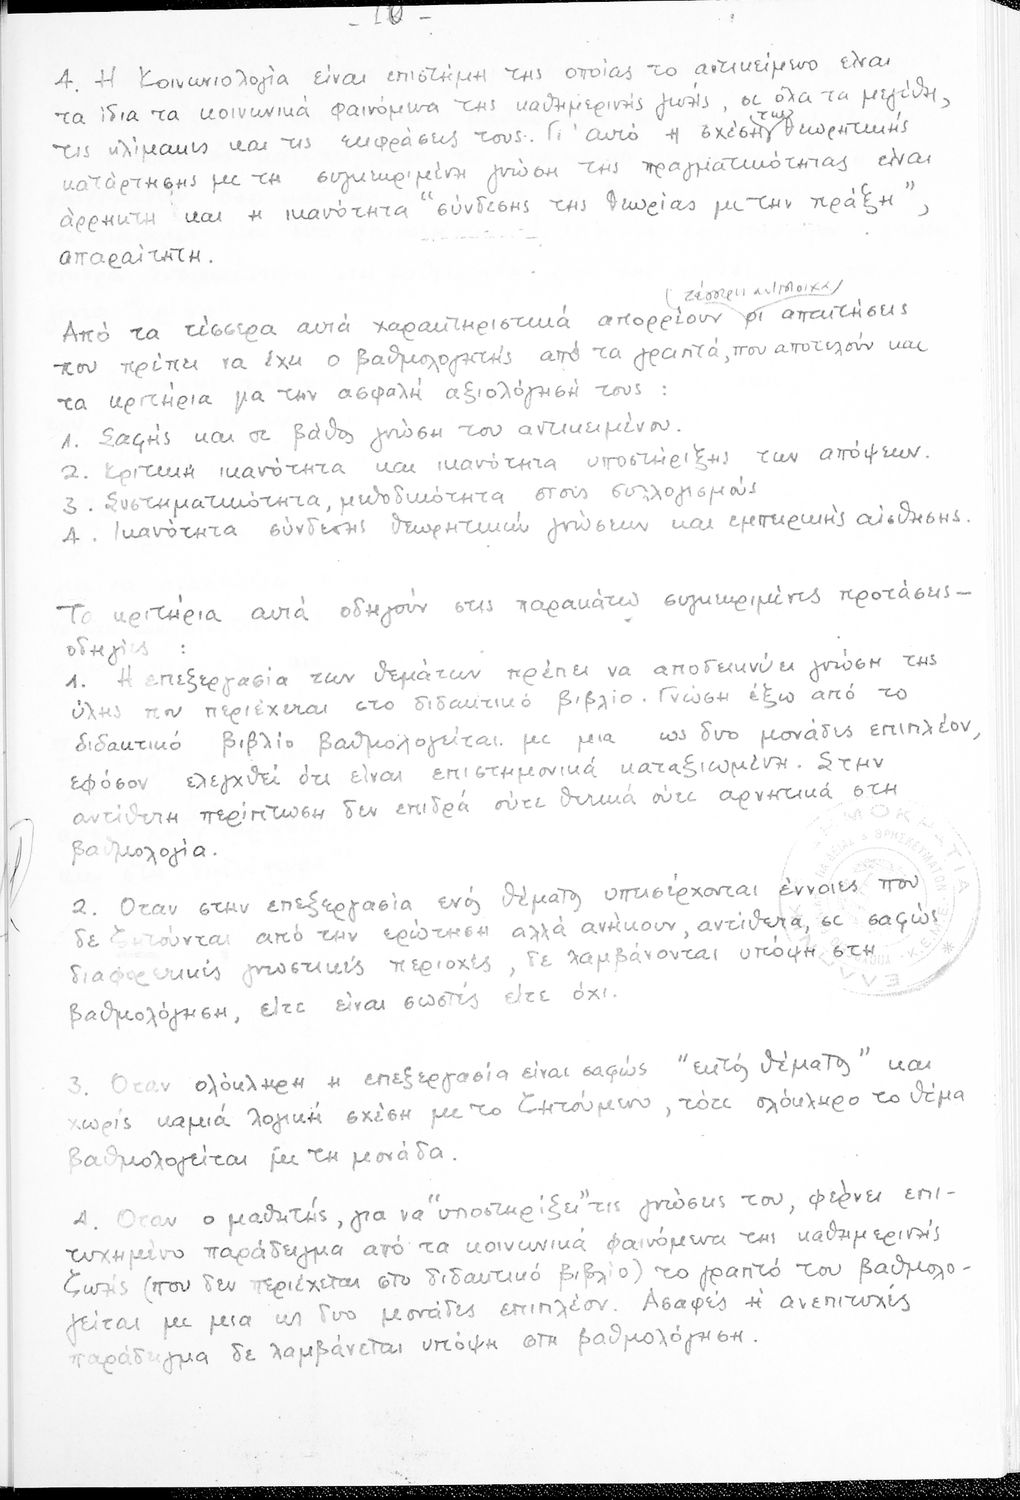 - 10 -
4. Η Κοινωνιολογία είναι επιστήμη της οποίας το αντικείμενο είναι
τα ίδια τα κοινωνικά φαινόμενα της καθημερινής ζωής, σε όλα τα μεγέθη,
τις κλίμακες και τις εκφράσεις τους. Γι' αυτό η σχέση της θεωρητικής
κατάρτησης με τη συγκεκριμένη γνώση της πραγματικότητας είναι
άρρηκτη και η ικανότητα "σύνδεσης της θεωρίας με την πράξη",
απαραίτητη.
(τέσσερις αντίστοιχα)
Από τα τέσσερα αυτά χαρακτηριστικά απορρέουν οι απαιτήσεις
που πρέπει να έχει ο βαθμολογητής από τα γραπτά, που αποτελούν και
τα κριτήρια για την ασφαλή αξιολόγησή τους :
1. Σαφής και σε βάθος γνώση του αντικειμένου.
2. Κριτική ικανότητα και ικανότητα υποστήριξης των απόψεων.
3. Συστηματικότητα, μεθοδικότητα στους συλλογισμούς
4. Ικανότητα σύνδεσης θεωρητικών γνώσεων και εμπειρικής αίσθησης.
Τα κριτήρια αυτά οδηγούν στις παρακάτω συγκεκριμένες προτάσεις-
οδηγίες :
1. Η επεξεργασία των θεμάτων πρέπει να αποδεικνύει γνώση της
ύλης που περιέχεται στο διδακτικό βιβλίο. Γνώση έξω από το
διδακτικό βιβλίο βαθμολογείται με μια ως δυο μονάδες επιπλέον,
εφόσον ελεγχθεί ότι είναι επιστημονικά καταξιωμένη. Στην
αντίθετη περίπτωση δεν επιδρά ούτε θετικά ούτε αρνητικά στη
βαθμολογία.
2. Όταν στην επεξεργασία ενός θέματος υπεισέρχονται έννοιες που
δε ζητούνται από την ερώτηση αλλά ανήκουν, αντίθετα, σε σαφώς
διαφορετικές γνωστικές περιοχές, δε λαμβάνονται υπόψη στη
βαθμολόγηση, είτε είναι σωστές είτε όχι.
3. Όταν ολόκληρη η επεξεργασία είναι σαφώς "εκτός θέματος" και
χωρίς καμιά λογική σχέση με το ζητούμενο, τότε ολόκληρο το θέμα
βαθμολογείται με τη μονάδα.
4. Όταν ο μαθητής, για να "υποστηρίξει" τις γνώσεις του, φέρνει επι-
τυχημένο παράδειγμα από τα κοινωνικά φαινόμενα της καθημερινής
ζωής (που δεν περιέχεται στο διδακτικό βιβλίο) το γραπτό του βαθμολο-
γείται με μια ως δυο μονάδες επιπλέον. Ασαφές ή ανεπιτυχές
παράδειγμα δε λαμβάνεται υπόψη στη βαθμολόγηση.